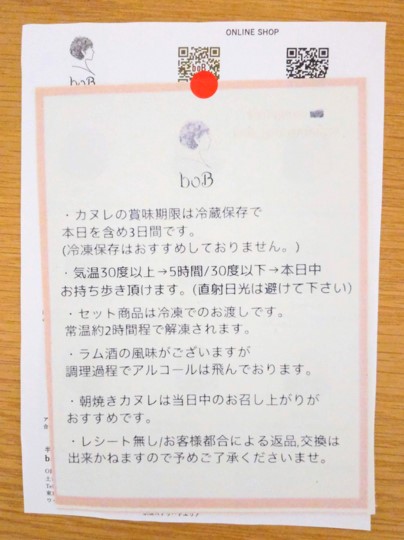 ONLINE SHOP
boB
boB
boB
・カヌレの賞味期限は冷蔵保存で
本日を含め3日間です。
(冷凍保存はおすすめしておりません。)
・気温30度以上→5時間/30度以下→本日中
お持ち歩き頂けます。(直射日光は避けて下さい)
・セット商品は冷凍でのお渡しです。
常温約2時間程で解凍されます。
・ラム酒の風味がございますが
調理過程でアルコールは飛んでおります。
・朝焼きカヌレは当日中のお召し上がりが
おすすめです。
・レシート無し/お客様都合による返品,交換は
出来かねますので予めご了承くださいませ。